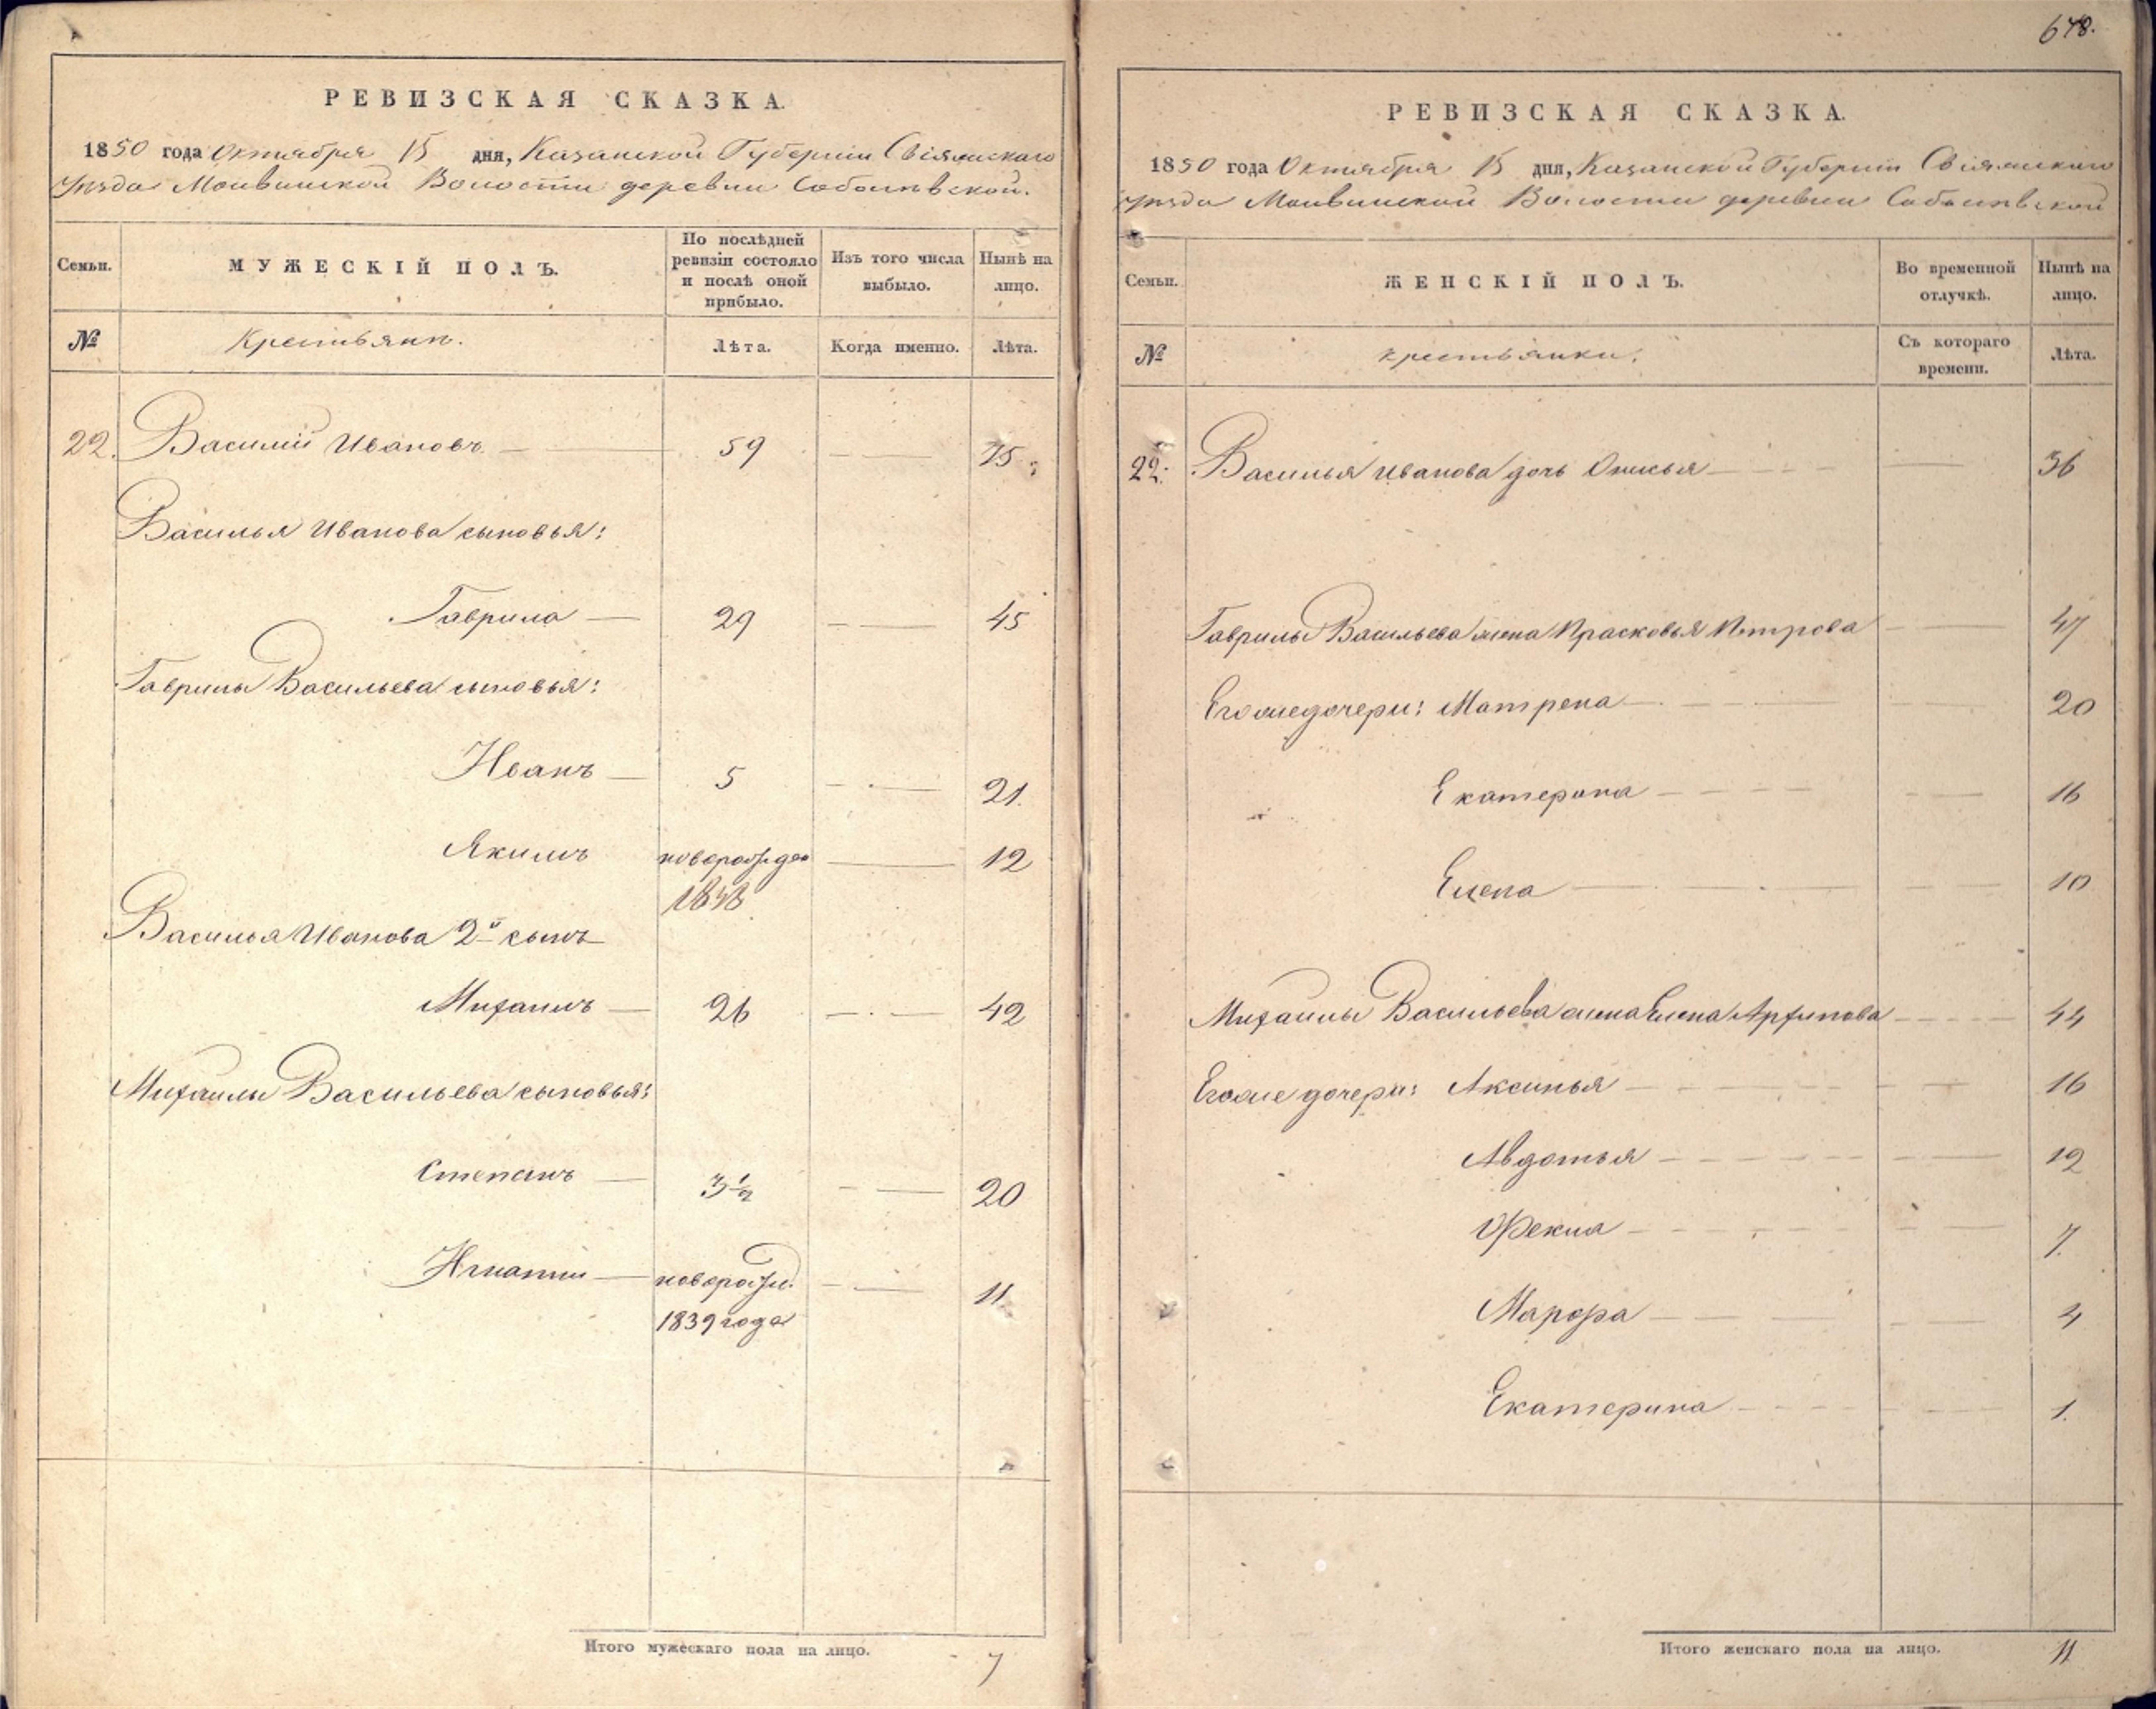 РЕВИЗСКАЯ СКАЗКА.
1850 года Октября 15 дня, Казанской Губерніи Свіяжскаго
уѣзда Волости деревни
Семьи.
МУЖЕСКІЙ ПОЛЪ.
По послѣдней ревизіи состояло и послѣ оной прибыло.
Изъ того числа выбыло.
Нынѣ на лицо.
№
Крестьянъ.
Лѣта.
Когда именно.
Лѣта.
22. Василий Ивановъ 59 75
Василья Иванова сыновья:
Гаврила 29 45
Гаврилы Васильева сыновья:
Иванъ 5 21.
Якимъ новорожден 12
1838
Василья Иванова 2й сынъ
Михаилъ 26 42
Михаилы Васильева сыновья:
Степанъ 3½ 20
Игнатий новорожд. 11
1839 года
Итого мужескаго пола на лицо. 7
648.
РЕВИЗСКАЯ СКАЗКА.
1850 года Октября 15 дня, Казанской Губерніи Свіяжскаго
уѣзда Волости деревни
Семьи.
ЖЕНСКІЙ ПОЛЪ.
Во временной отлучкѣ.
Нынѣ на лицо.
№
Крестьянки.
Съ котораго времени.
Лѣта.
22. Василья Иванова дочь Анисья 36
Гаврилы Васильева жена Прасковья Петрова 47
Его же дочери: Матрена 20
Екатерина 16
Елена 10
Михаилы Васильева жена Елена Архипова 44
Его же дочери: Аксинья 16
Авдотья 12
Фекла 7.
Марфа 4
Екатерина 1.
Итого женскаго пола на лицо. 11